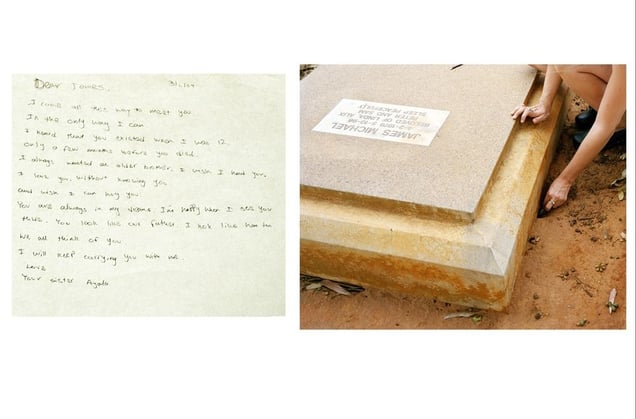 Dear James. 31.1.04
I came all this way to meet you
In the only way I can
I heard that you existed when I was 12,
only a few months before you died.
I always wanted an older brother. I wish I had you.
I love you, without knowing you
and wish I can hug you.
You are always in my dreams. I'm happy when I see you
there. You look like our father. I look like him too
We all think of you
I will keep carrying you with me.
Love
Your sister Ayala
JAMES MICHAEL
BELOVED OF LINDA ALIX
PETER AND SAM
SLEEP PEACEFULLY